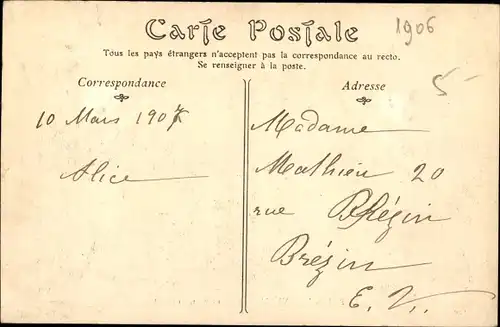 Carte Postale
1906
Tous les pays étrangers n'acceptent pas la correspondance au recto.
Se renseigner à la poste.
Correspondance
10 Mars 1907
Alice
Adresse
5
Madame
Mathieu 20
rue
Brézin
E. V.